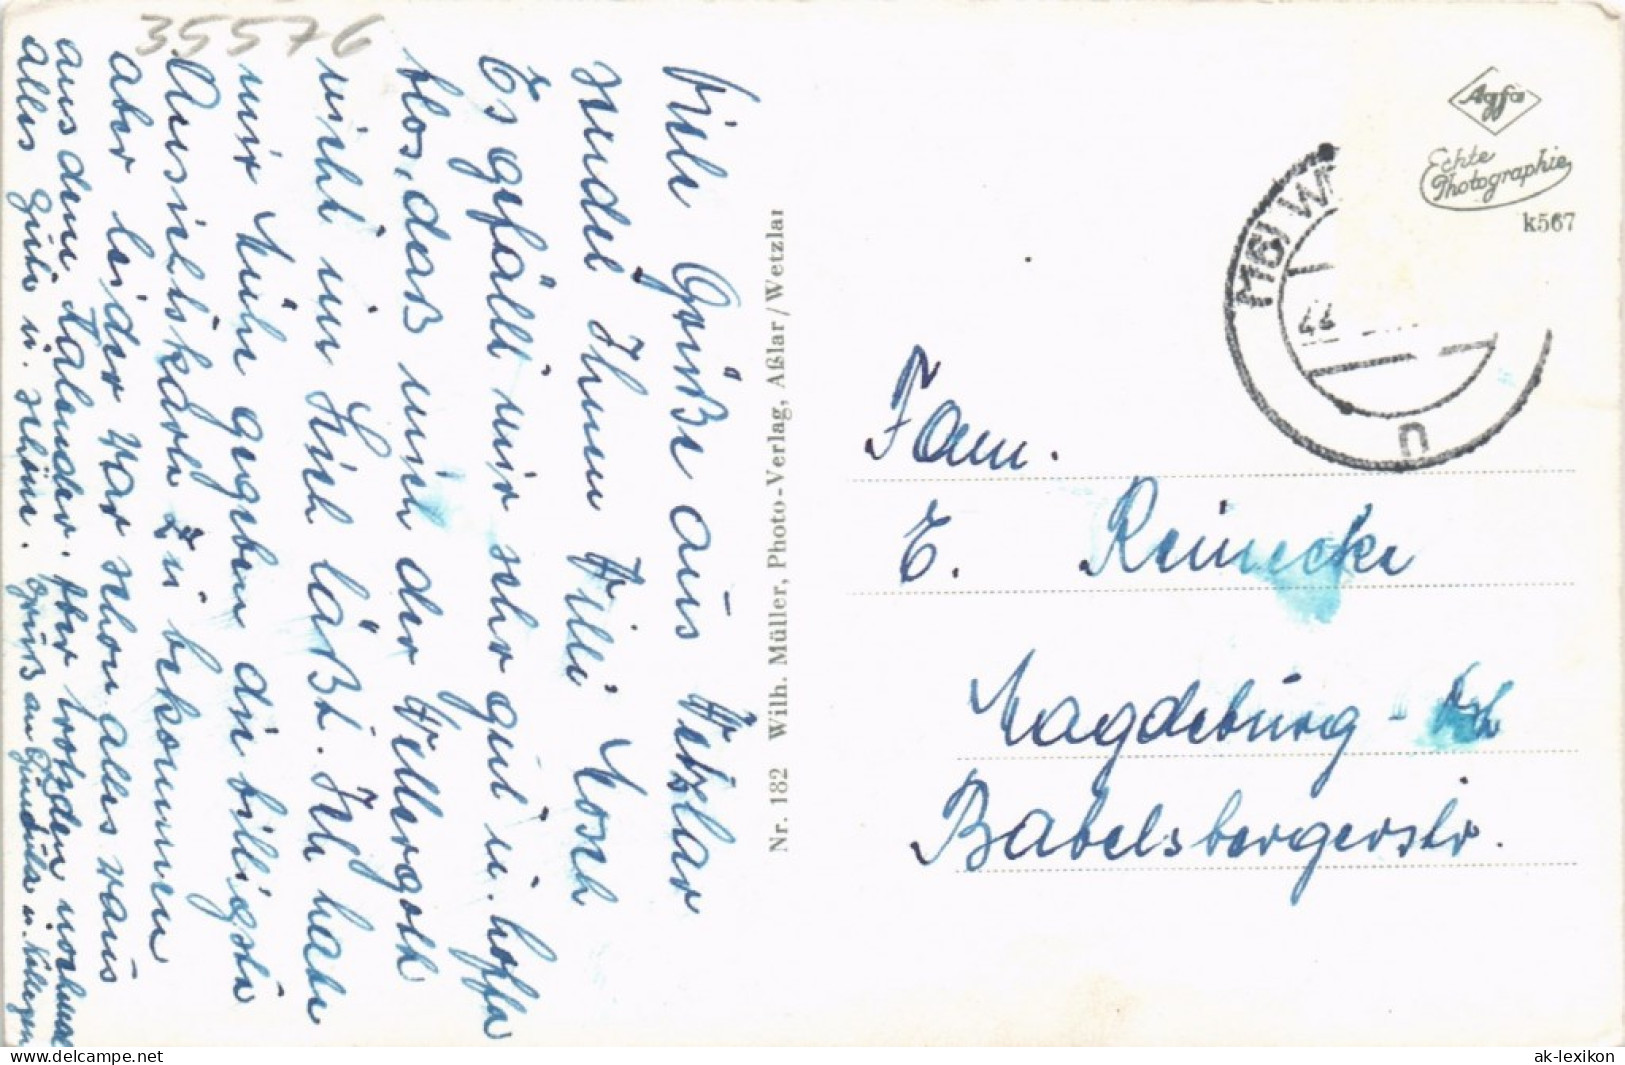 35576
Viele Grüße aus Wetzlar
sendet Ihnen Willi Mosch
Es gefällt mir sehr gut u. hoffe
blos, daß mich der Wellergott
nicht im Stich läßt. Ich habe
mir Mühe gegeben die billigste
Ansichtskarte zu bekommen
aber leider war schon alles raus
aus dem Kalender. Aber trotzdem nochmal
alles Gute u. schöne. Grüß an Gundula u. Kollegen
Nr. 182 Wilh. Müller, Photo-Verlag, Aßlar / Wetzlar
Agfa
Echte
Photographie
k567
(16) W
n
Fam.
E. Reinecke
Magdeburg -
Babelsbergerstr.
ak-lexikon.com